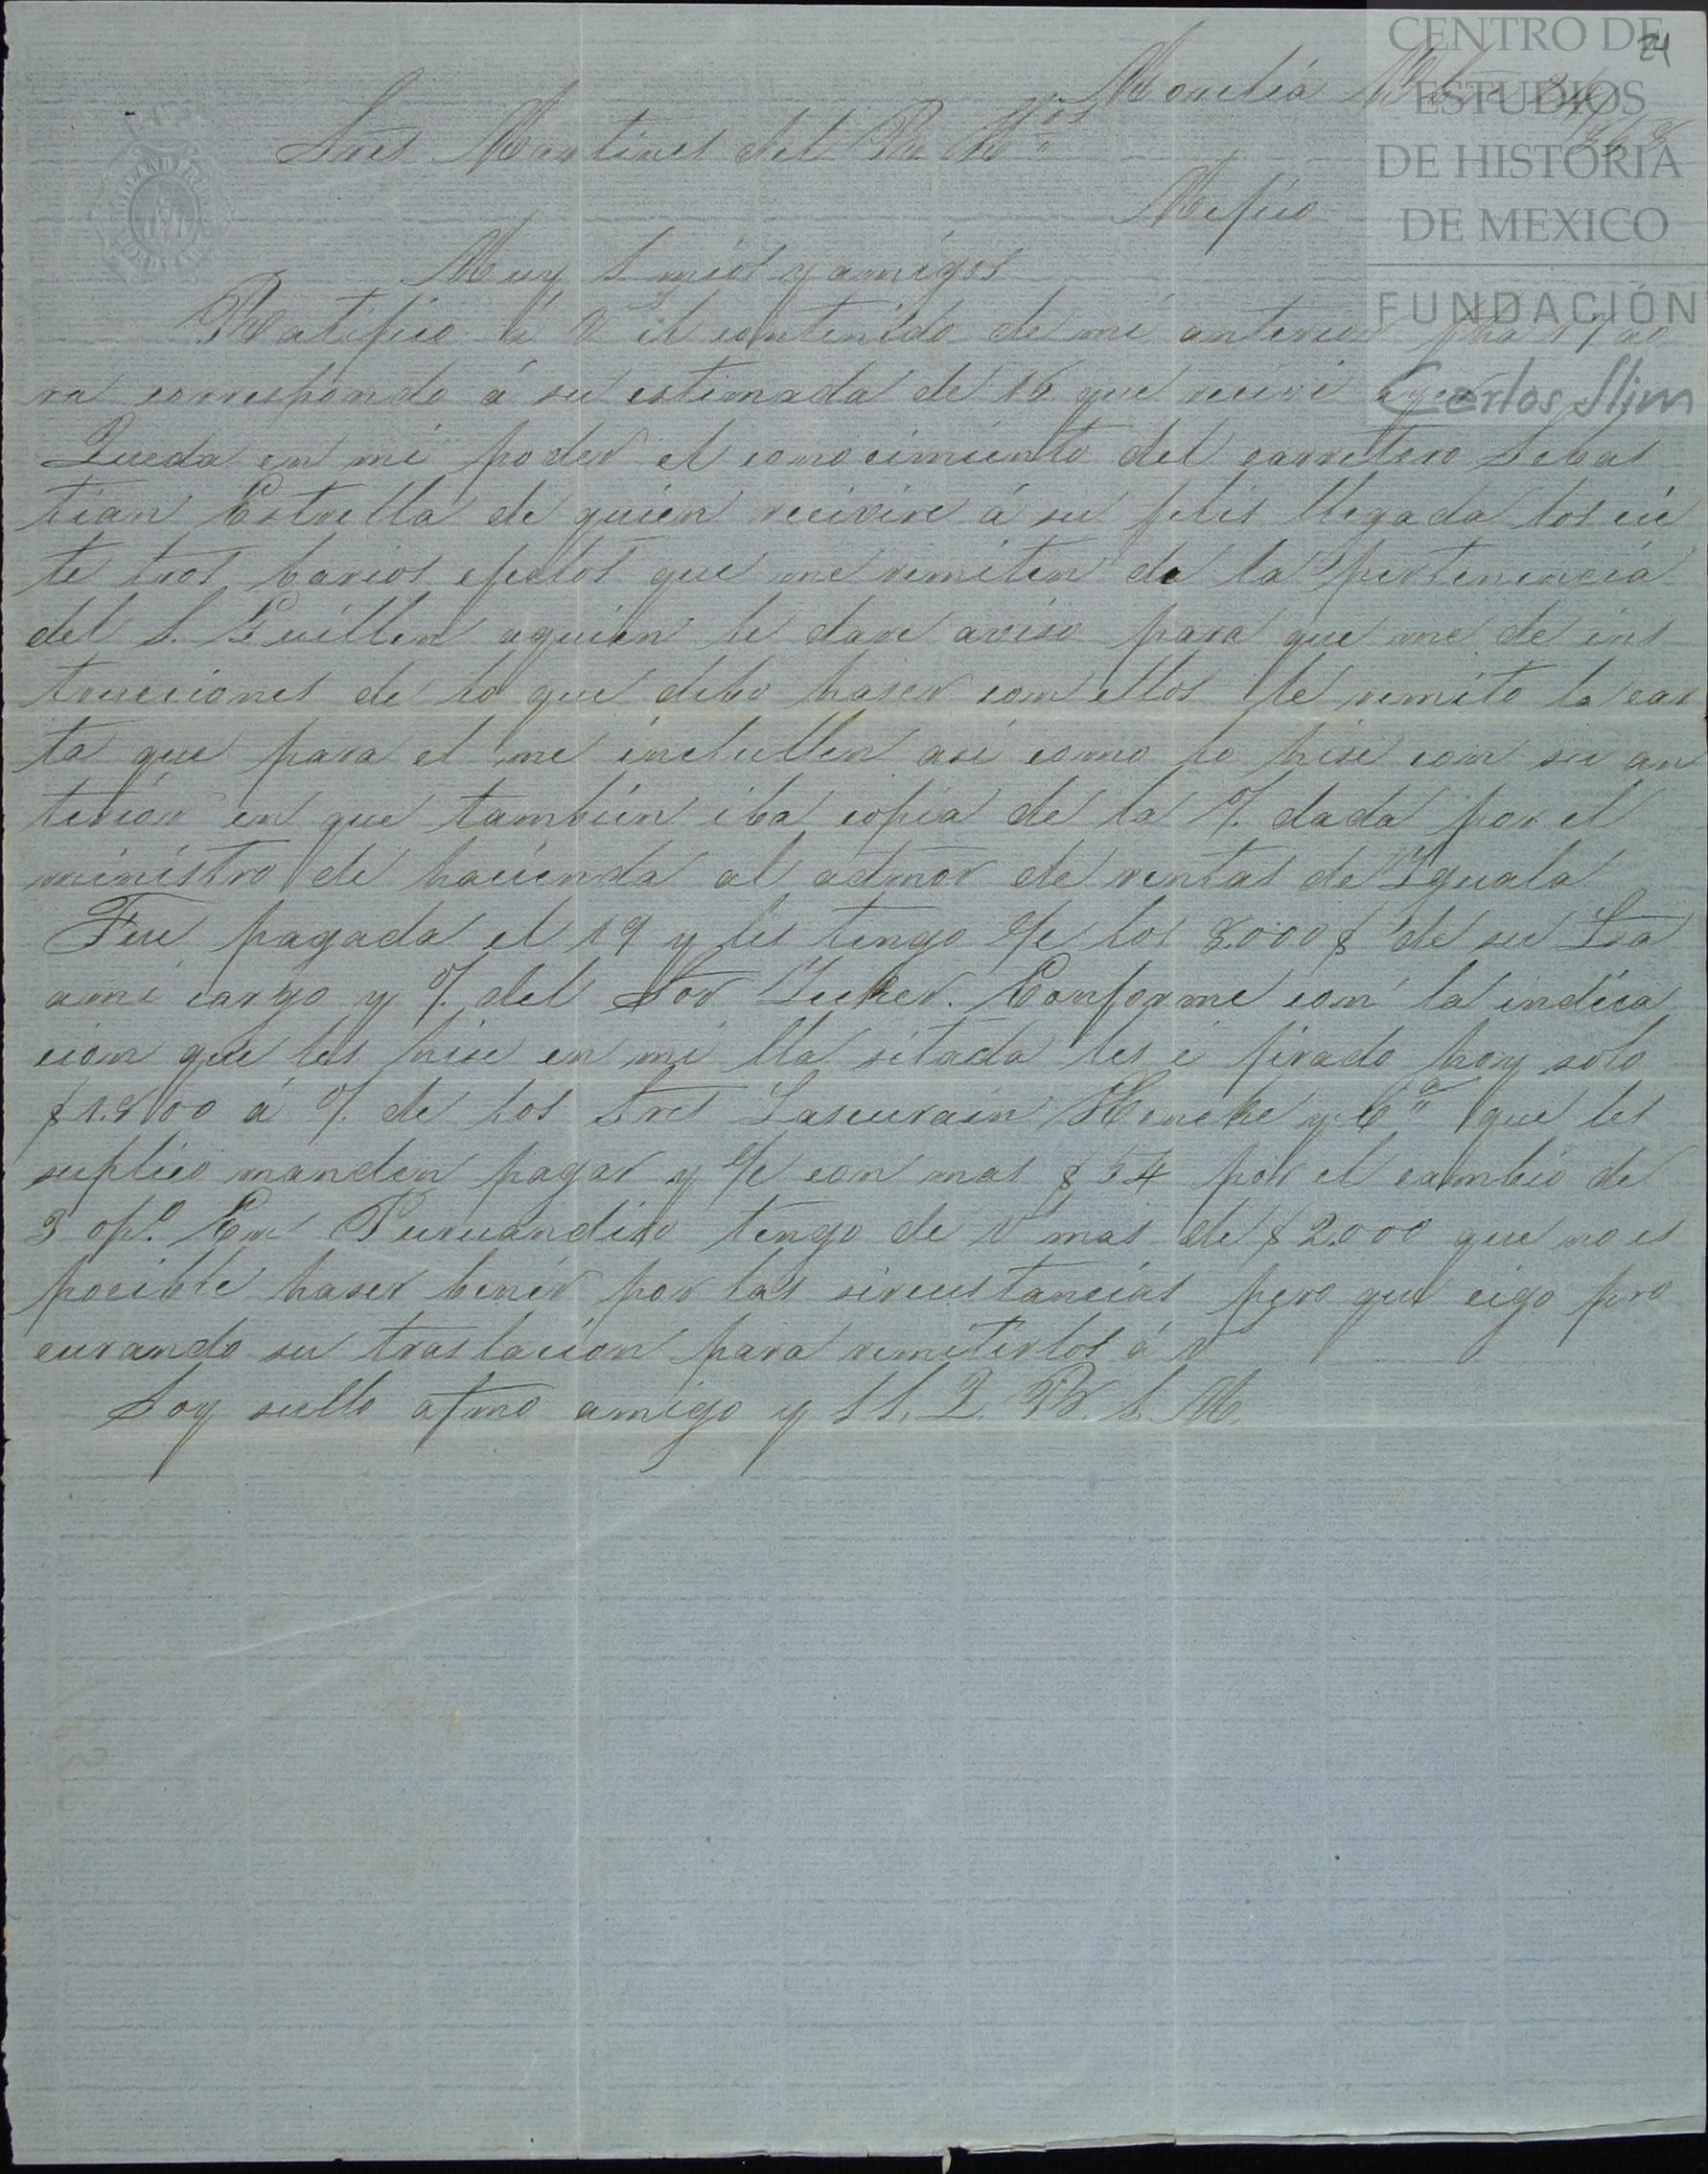 24
CENTRO DE
ESTUDIOS
DE HISTORIA
DE MEXICO
FUNDACIÓN
Carlos Slim
Morelia
Sres Martines del Rio Hos
Mejico
Muy S. mios y amigos
Ratifico á V el contenido de mi anterior fha 17 ao
ra correspondo á su estimada de 16 que reciví ayer
Queda en mi poder el conocimiento del carretero Sebas
tian Estrella de quien recivire á su felis llegada los cie
te tros barios efectos que me remiten de la pertenencia
del S. Guillen aquien le dare aviso para que me de ins
trucciones de lo que debo haser con ellos le remito la car
ta que para el me inclullen asi como lo hise con su an
terior en que tambien iba copia de la O/. dada por el
ministro de hacienda al admor de rentas de Iguala
Fue pagada el 19 y les tengo c/e los 8.000$ de su Lta
ami cargo y O/. del Sor Tucker. Conforme con la indica
cion que les hise en mi lla sitada les é jirado hoy solo
$1.800 á O/. de los Sres Lascurain Heneke y Cª que les
suplico manden pagar y c/e con mas $54 por el cambio de
3 op.º En Puruandiro tengo de V mas de $2.000 que no es
pocible haser benir por las sircustancias pero que cigo pro
curando su traslacion para remitirlos á V
Soy sullo afmo amigo y S S. Q. B. S. M.